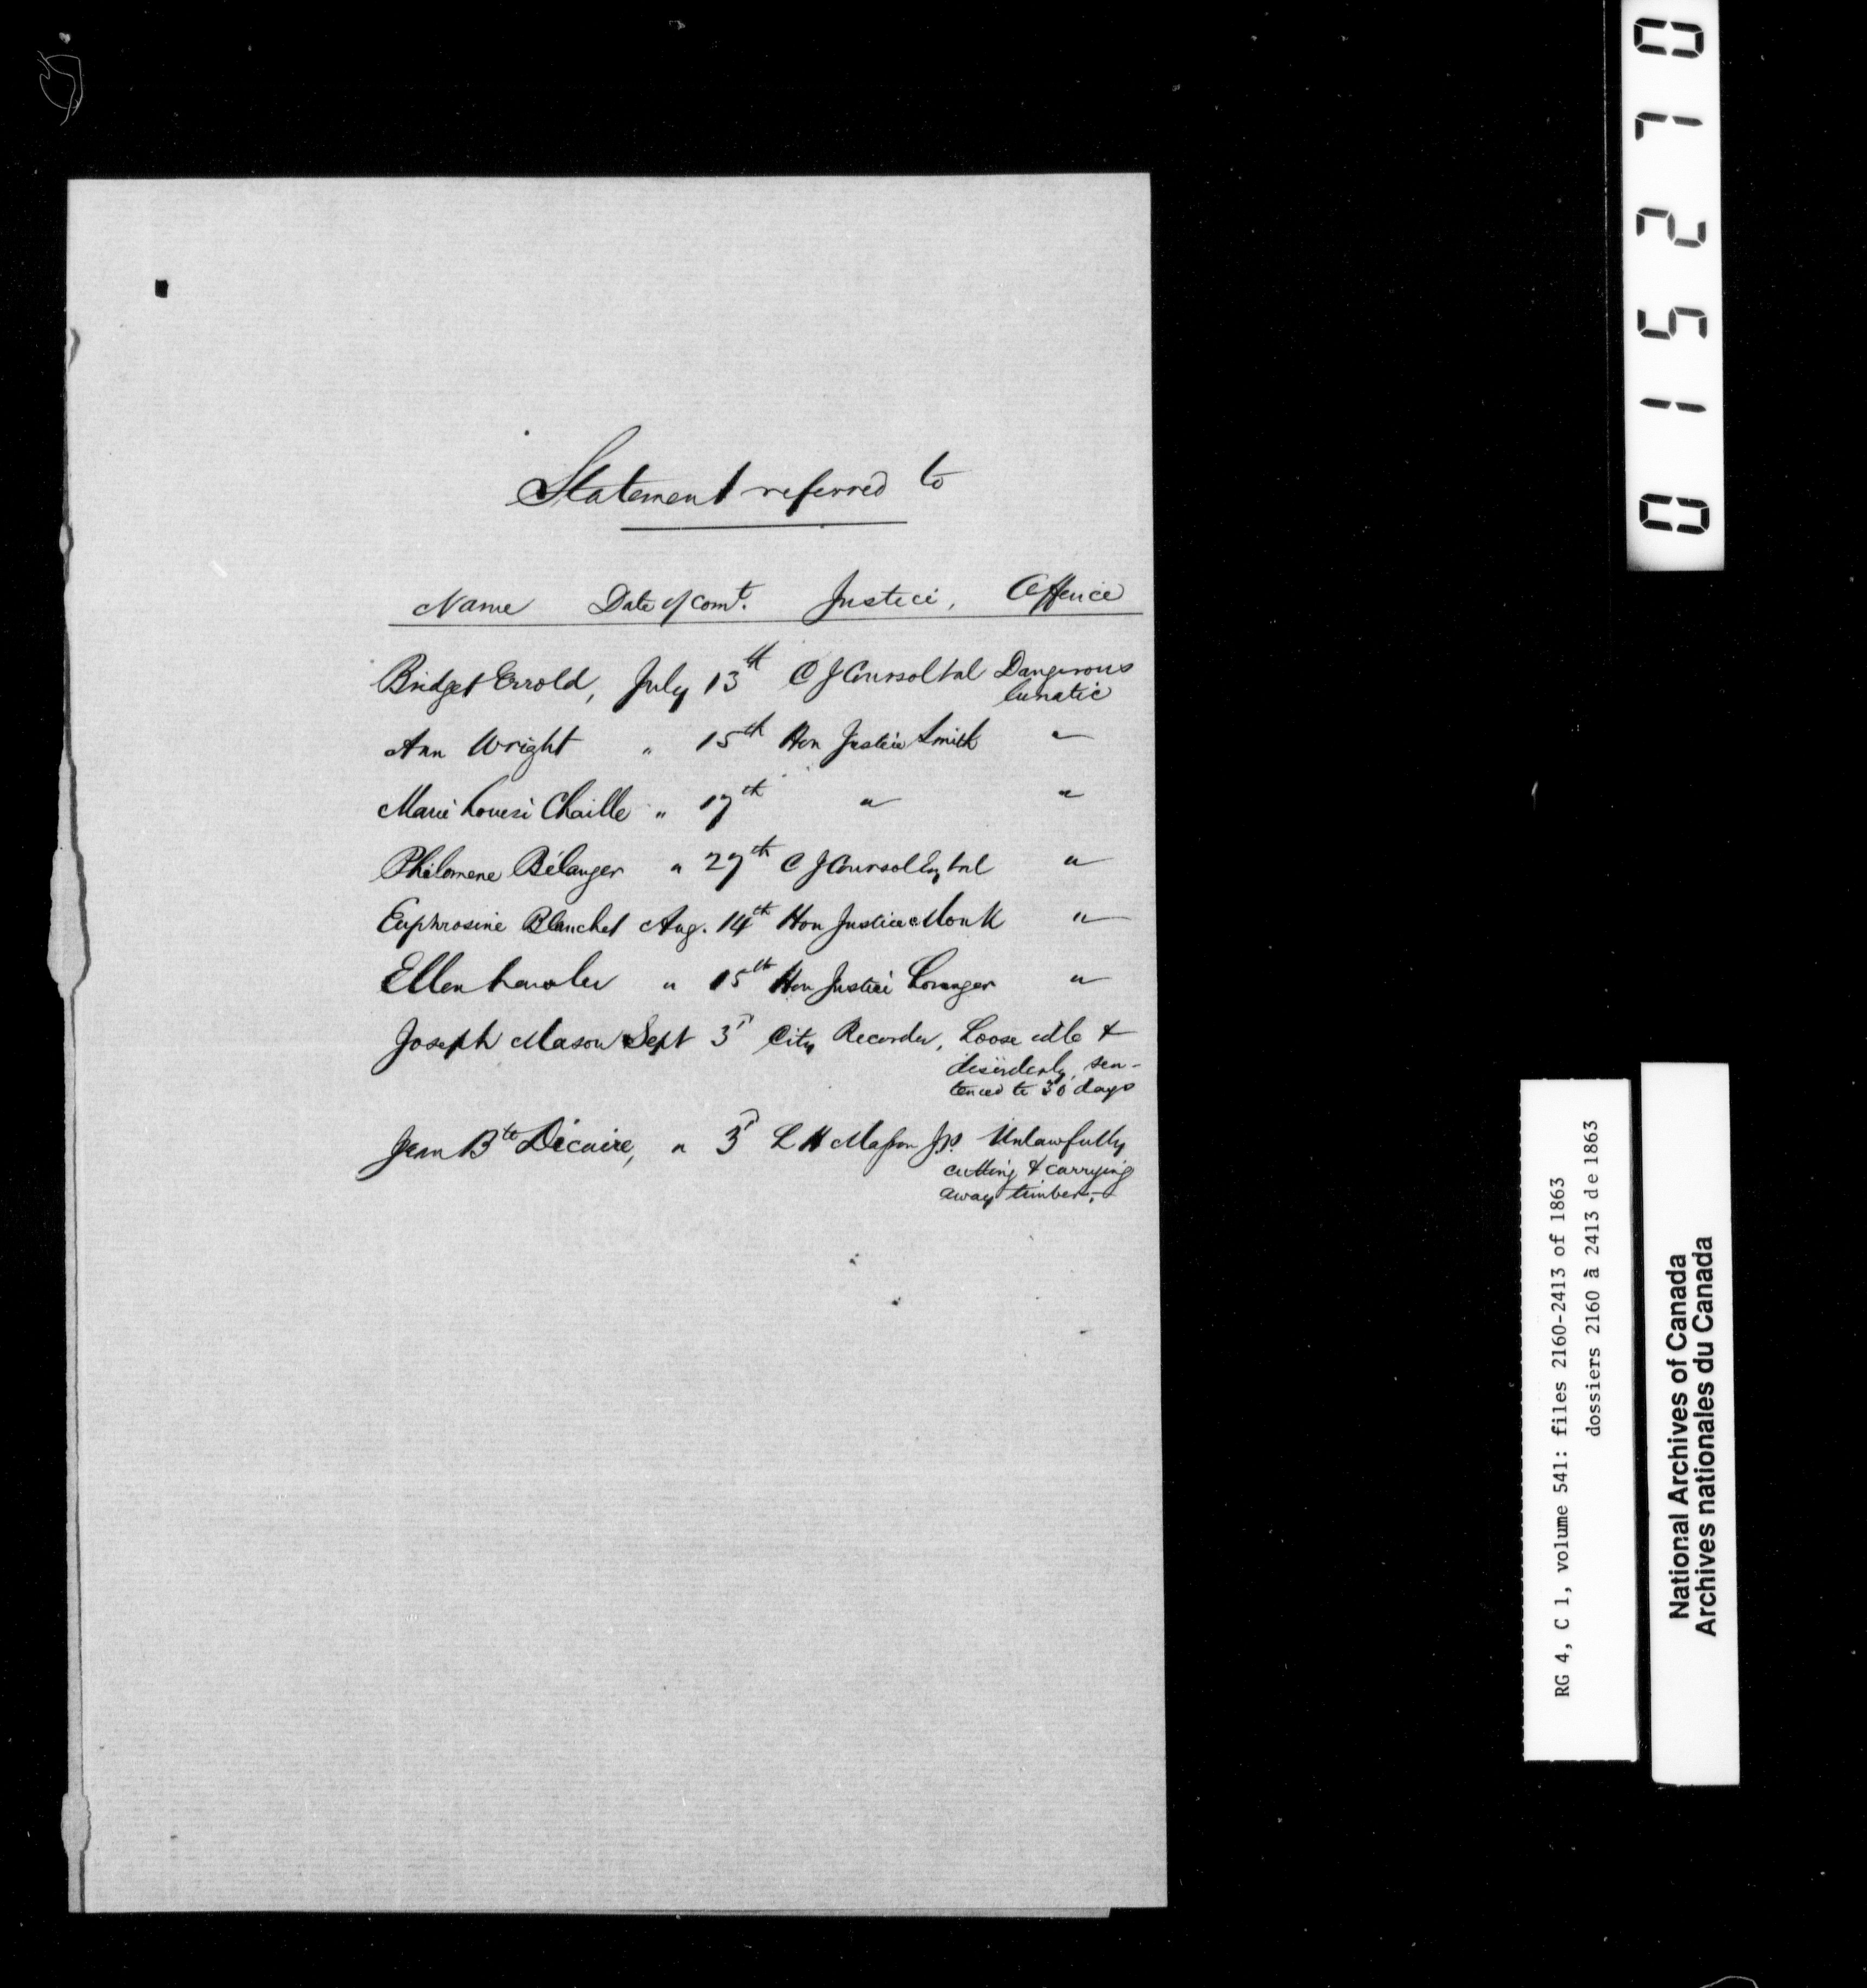 Statement referred to
Name Date of Comt. Justice, Offence
Bridget Errold, July 13th C J Coursol Dangerous
lunatic
Ann Wright " 15th Hon Justice Smith "
Marie Louise Chaille " 17th " "
Philomene Bélanger " 27th C J Coursol Esq "
Euphrosine Blanchet Aug. 14th Hon Justice Monk "
Ellen Lawler " 15th Hon Justice Loranger "
Joseph Mason Sept 3d City Recorder, Loose idle &
disorderly, sen-
tenced to 30 days
Jean Bte Décaire, " 3d L H Masson JP. Unlawfully
cutting & carrying
away timber.
015270
RG 4, C 1, volume 541: files 2160-2413 of 1863
dossiers 2160 à 2413 de 1863
National Archives of Canada
Archives nationales du Canada